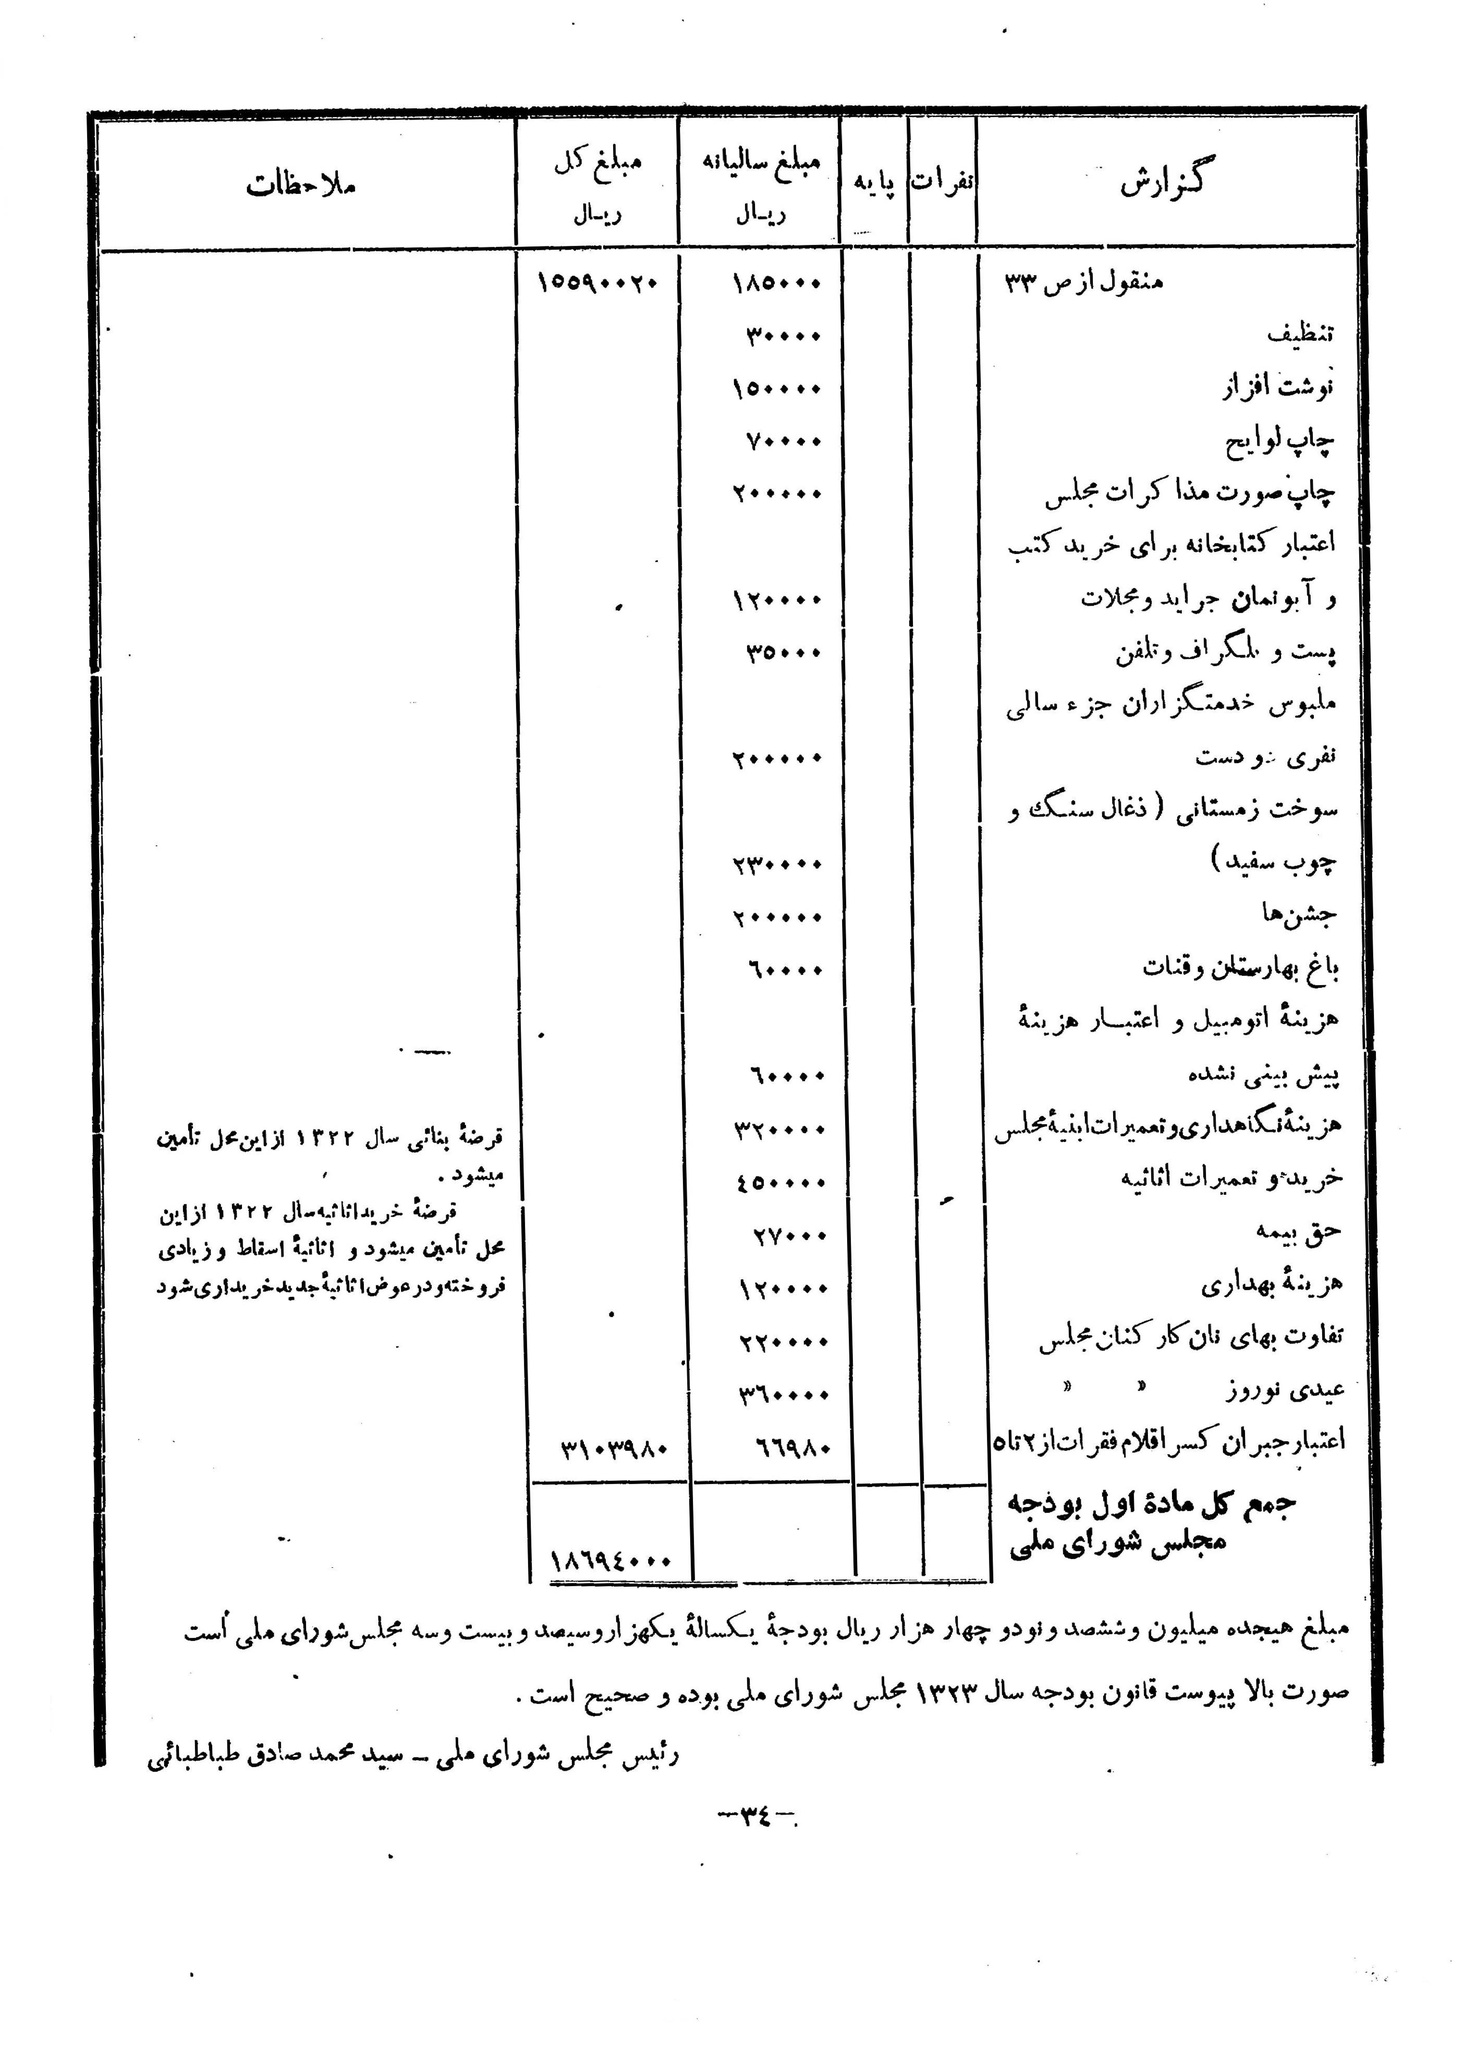 گزارش نفرات پایه مبلغ سالیانه ریـال مبلغ کل ریـال ملاحظات
منقول از ص ۳۳ ۱۸۵۰۰۰ ۱۵۵۹۰۰۲۰
تنظیف ۳۰۰۰۰
نوشت افزار ۱۵۰۰۰۰
چاپ لوایح ۷۰۰۰۰
چاپ صورت مذاکرات مجلس ۲۰۰۰۰۰
اعتبار کتابخانه برای خرید کتب
و آبونمان جراید و مجلات ۱۲۰۰۰۰
پست و تلگراف و تلفن ۳۵۰۰۰
ملبوس خدمتگزاران جزء سالی
نفری دو دست ۲۰۰۰۰۰
سوخت زمستانی (ذغال سنگ و
چوب سفید) ۲۳۰۰۰۰
جشن‌ها ۲۰۰۰۰۰
باغ بهارستان و قنات ٦۰۰۰۰
هزینهٔ اتومبیل و اعتبار هزینهٔ
پیش بینی نشده ٦۰۰۰۰
هزینهٔ نگاهداری و تعمیرات ابنیهٔ مجلس ۳۲۰۰۰۰ قرضهٔ بنائی سال ۱۳۲۲ از این محل تأمین
میشود .
خرید و تعمیرات اثاثیه ٤۵۰۰۰۰
قرضهٔ خرید اثاثیه سال ۱۳۲۲ از این
حق بیمه ۲۷۰۰۰ محل تأمین میشود و اثاثیهٔ اسقاط و زیادی
هزینهٔ بهداری ۱۲۰۰۰۰ فروخته و در عوض اثاثیهٔ جدید خریداری شود
تفاوت بهای نان کارکنان مجلس ۲۲۰۰۰۰
عیدی نوروز » » ۳٦۰۰۰۰
اعتبار جبران کسر اقلام فقرات از ۲ تا ۵ ٦٦۹۸۰ ۳۱۰۳۹۸۰
جمع کل مادهٔ اول بودجه
مجلس شورای ملی ۱۸٦۹٤۰۰۰
مبلغ هیجده میلیون و ششصد و نود و چهار هزار ریال بودجهٔ یکسالهٔ یکهزار و سیصد و بیست و سه مجلس شورای ملی است
صورت بالا پیوست قانون بودجه سال ۱۳۲۳ مجلس شورای ملی بوده و صحیح است .
رئیس مجلس شورای ملی ــ سید محمد صادق طباطبائی
–۳٤–